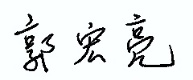 郭宏亮